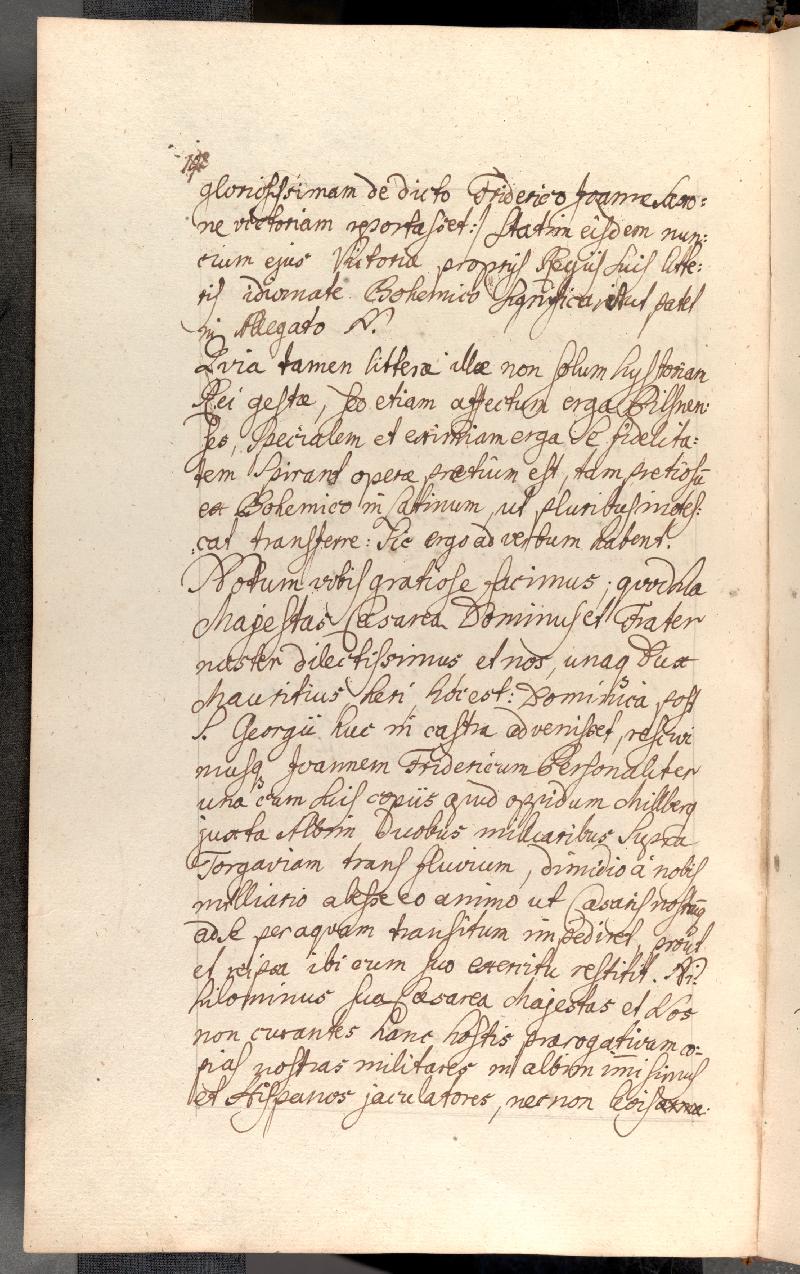 gloriosissimam de dicto Friderico Joanne Saxo=
ne victoriam reportasset:/ Statim eisdem nun:
cium ejus Victoria propriis Regiis suis litte:
ris idiomate Bohemico significavit ut patet
in Allegato N.
Quia tamen litteræ illæ non solum hystoriam
Rei gestæ, sed etiam affectum erga Pilsnen:
ses, specialem et eximiam erga se fidelita:
tem spirant operæ pretium est, tam pretiosū
ex Bohemico in Latinum, ut pluribus inotes:
cat transferre: Sic ergo ad verbum habent.
Nottum vobis gratiose facimus; quod ula
Majestas Cæsarea Dominus et Frater
noster dilectissimus et nos, unaq Dux
Mauritius heri, hóc est: Dominica post
S. Georgii huc in castra advenisset, rescivi
musq Joannem Fridericum Personaliter
una cum suis copiis apud oppidum Millberg
juxta Albim Duobus milliaribus supra
Torgaviam trans fluvium, dimidio á nobis
milliario abesse eo animo ut Cæsaris nostrūq
ad se per aquam transitum impediret, prout
et reipsa ibi cum suo exercitu restitit. Ni:
hilominus sua Cæsarea Majestas et Nos
non curantes hanc hostis prærogativam co:
pias nostras militares in albim immisimus
et Hispanos jaculatores, necnon